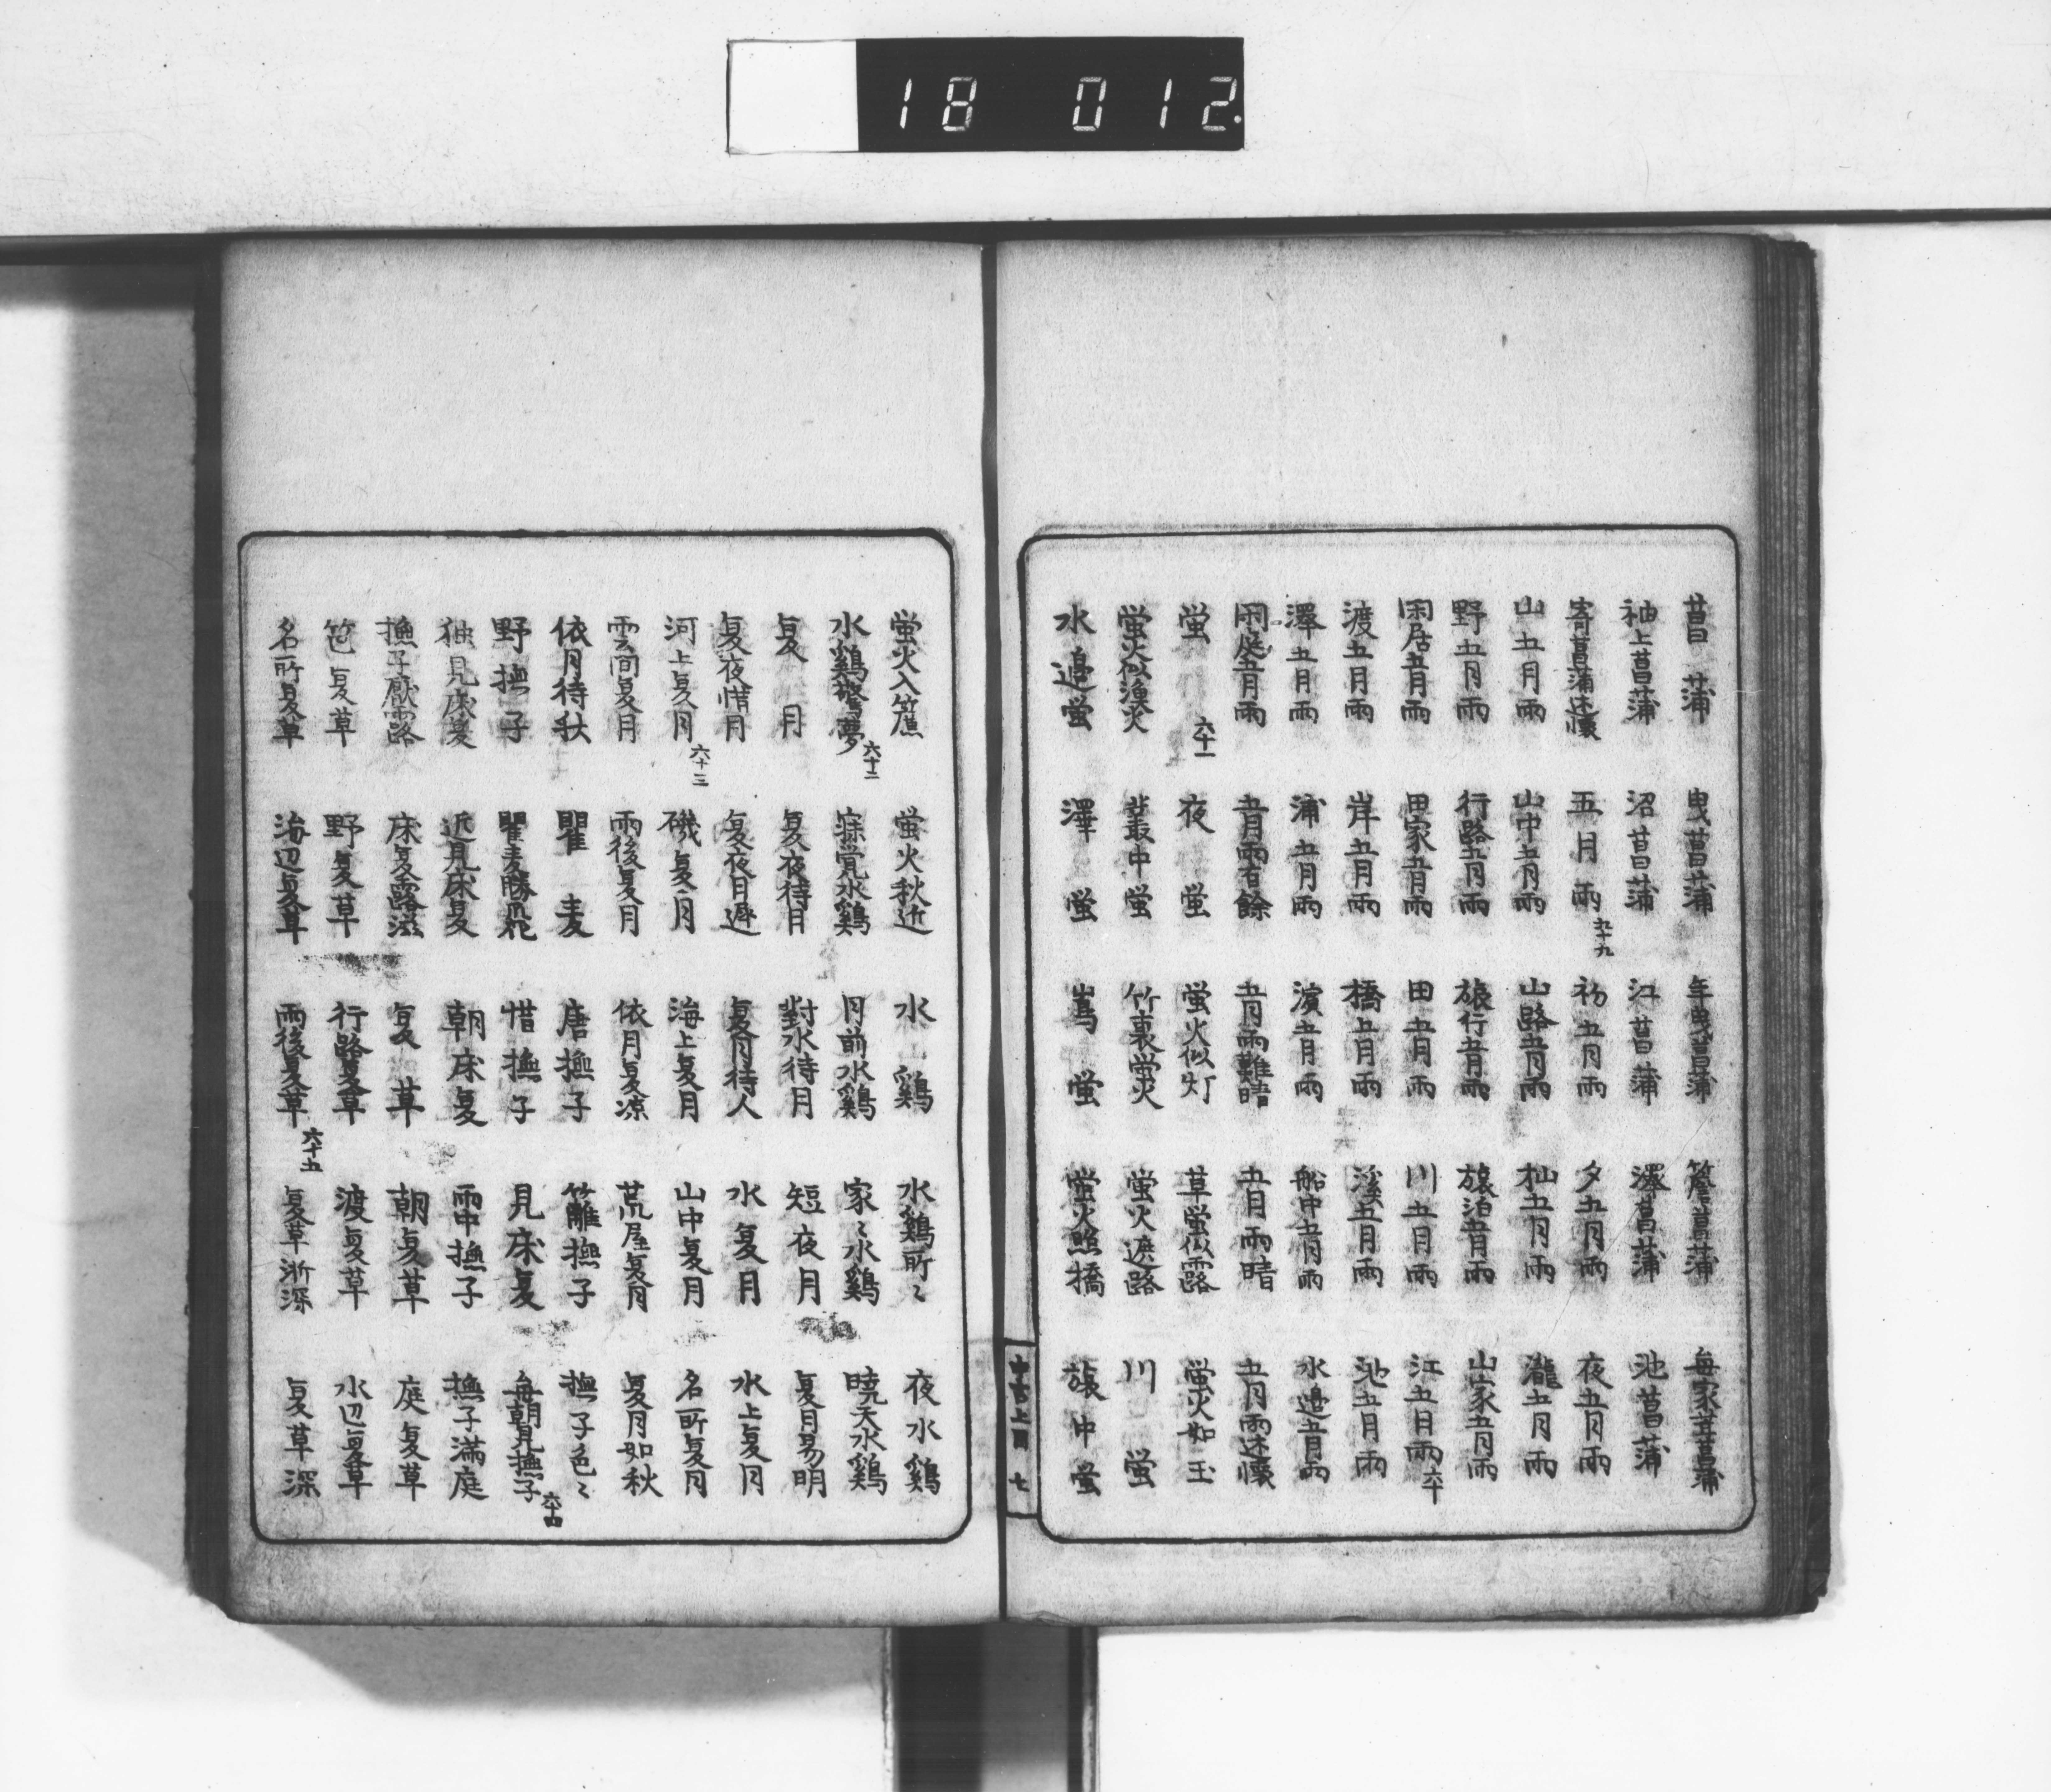 18 012
菖蒲 曳菖蒲 年曳菖蒲 簷菖蒲 毎家葺菖蒲
袖上菖蒲 沼菖蒲 江菖蒲 澤菖蒲 池菖蒲
寄菖蒲述懐 五月雨 五十九 初五月雨 夕五月雨 夜五月雨
山五月雨 山中五月雨 山路五月雨 杣五月雨 瀧五月雨
野五月雨 行路五月雨 旅行五月雨 旅泊五月雨 山家五月雨
閑居五月雨 田家五月雨 田五月雨 川五月雨 江五月雨 六十
渡五月雨 岸五月雨 橋五月雨 溪五月雨 池五月雨
澤五月雨 浦五月雨 濵五月雨 船中五月雨 水邉五月雨
閑庭五月雨 五月雨有餘 五月雨難晴 五月雨晴 五月雨述懐
蛍 六十一 夜蛍 蛍火似灯 草蛍似露 蛍火如玉
蛍火似漁火 叢中蛍 竹裏蛍火 蛍火遮路 川蛍
水邉蛍 澤蛍 嶌蛍 蛍火照橋 旅中蛍
七
蛍火入簾 蛍火秋近 水鷄 水鷄所〻 夜水鷄
水鷄驚夢 六十二 寐覚水鷄 月前水鷄 家〻水鷄 暁天水鷄
夏月 夏夜待月 對水待月 短夜月 夏月易明
夏夜惜月 夏夜月遅 夏月待人 水夏月 水上夏月
河上夏月 六十三 磯夏月 海上夏月 山中夏月 名所夏月
雲間夏月 雨後夏月 依月夏凉 荒屋夏月 夏月如秋
依月待秋 瞿麦 唐撫子 籬撫子 撫子色〻
野撫子 瞿麦勝花 惜撫子 見床夏 毎朝見撫子 六十四
独見床夏 近見床夏 朝床夏 雨中撫子 撫子満庭
撫子厭露 床夏露滋 夏草 朝夏草 庭夏草
夏草 野夏草 行路夏草 渡夏草 水辺夏草
名所夏草 海辺夏草 雨後夏草 六十五 夏草漸深 夏草深